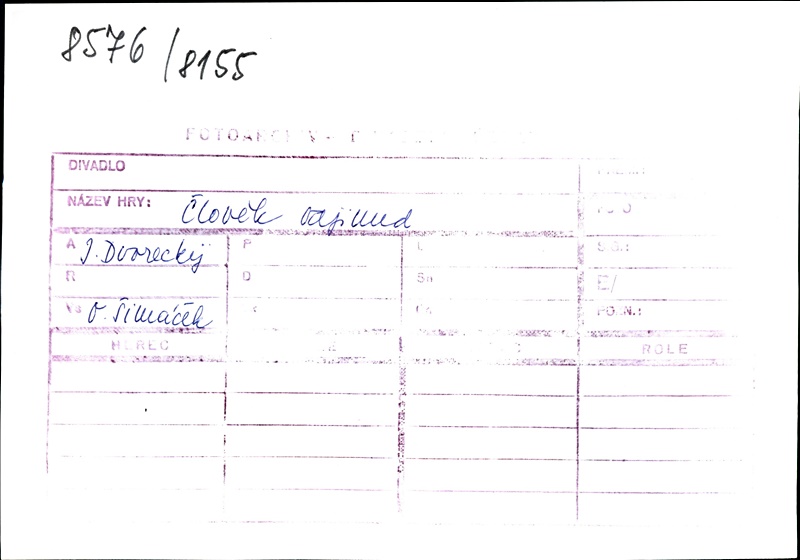 8576 / 8155
FOTOARCHIV -
DIVADLO
NÁZEV HRY: Člověk odjinud
A I. Dvoreckij P
R D Sn
Vs O. Šimáček
S.G.:
E/
HEREC ROLE